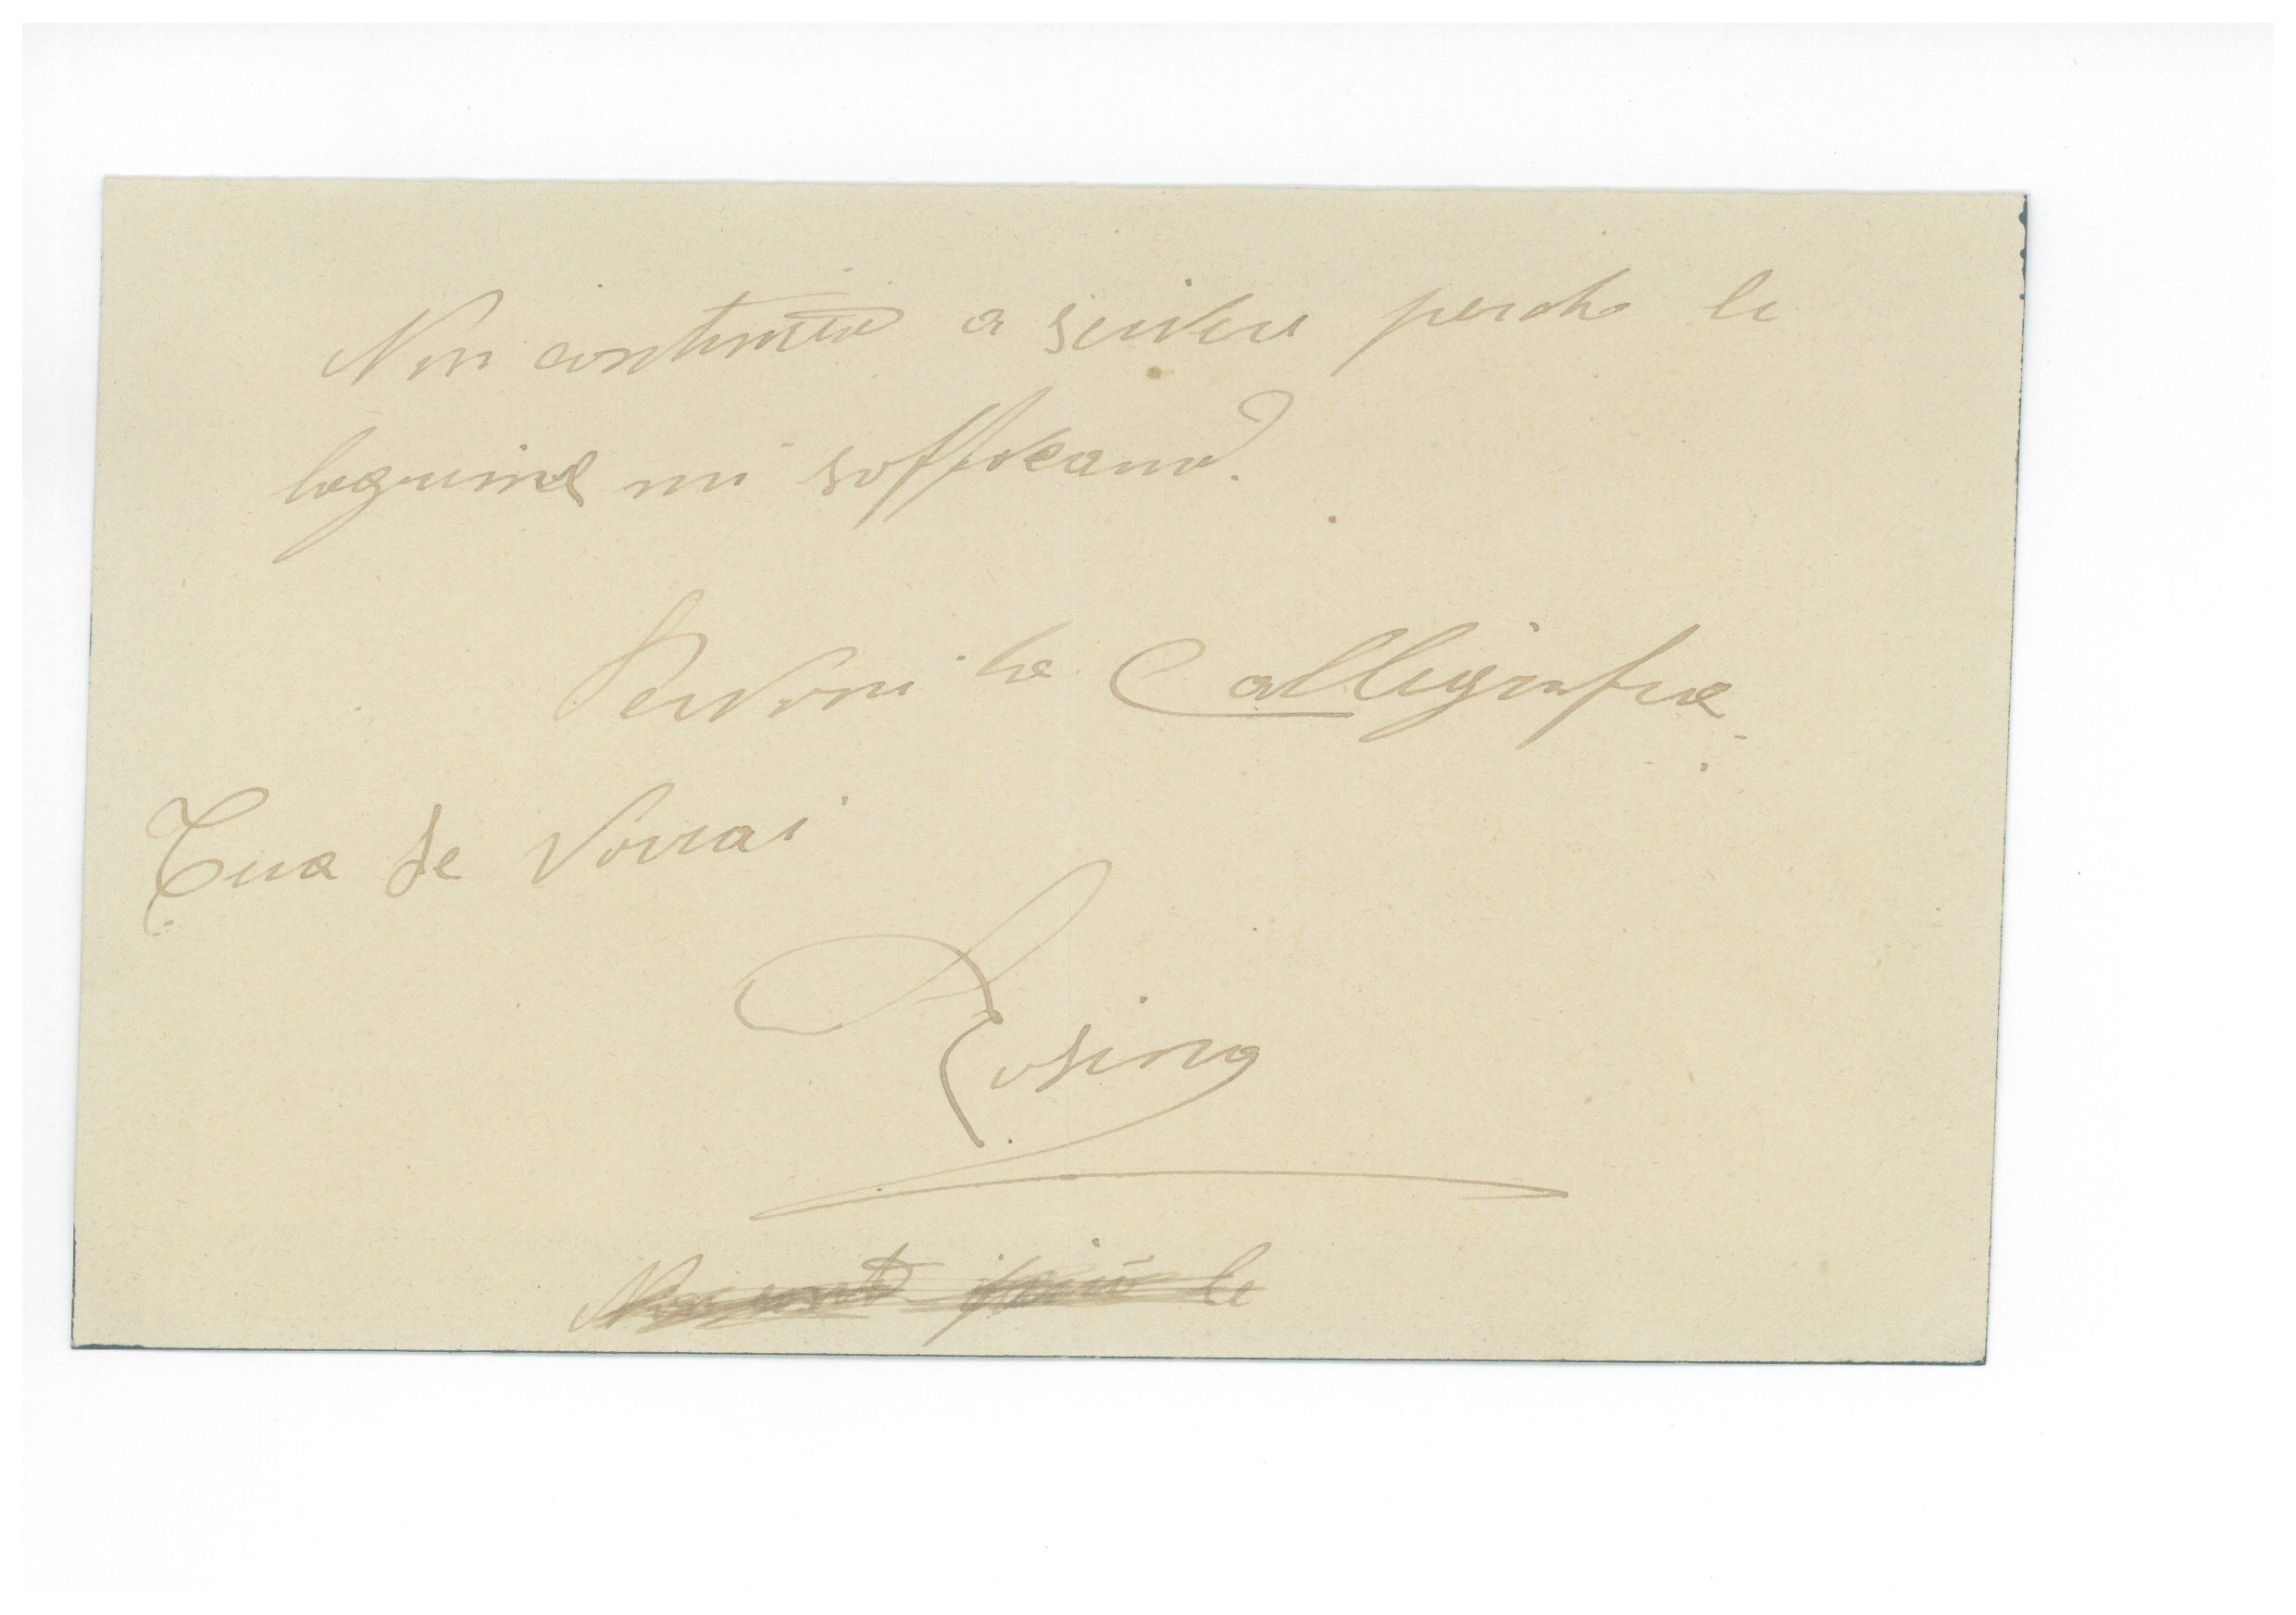 Non continuo a scrivere perche le
lagrime mi soffocano.
Perdoni la Calligrafia
Tua se vorrai
Rosina
le